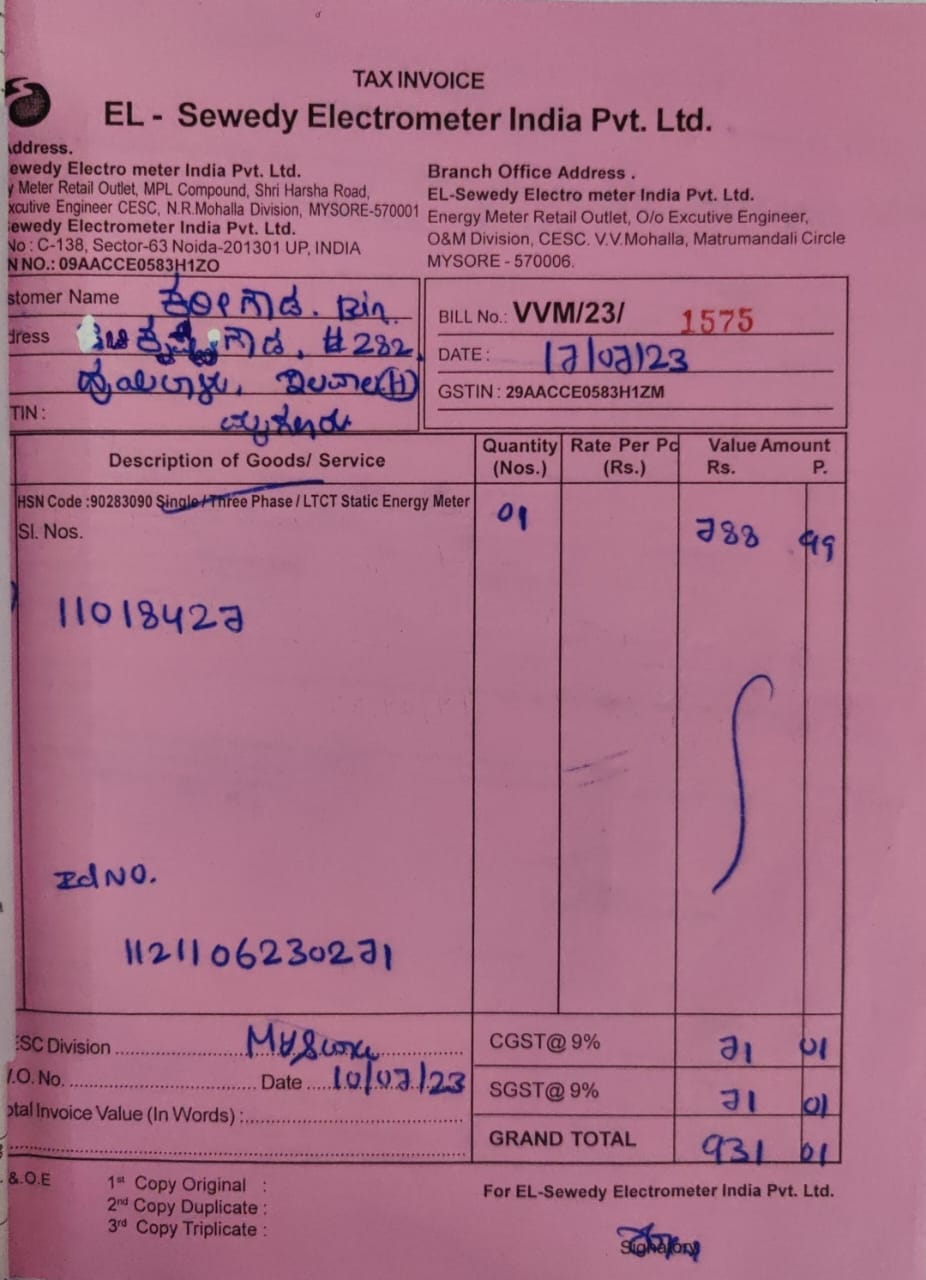 TAX INVOICE
EL - Sewedy Electrometer India Pvt. Ltd.
ddress.
ewedy Electro meter India Pvt. Ltd.
y Meter Retail Outlet, MPL Compound, Shri Harsha Road,
xcutive Engineer CESC, N.R.Mohalla Division, MYSORE-570001
ewedy Electrometer India Pvt. Ltd.
No : C-138, Sector-63 Noida-201301 UP, INDIA
N NO.: 09AACCE0583H1ZO
Branch Office Address .
EL-Sewedy Electro meter India Pvt. Ltd.
Energy Meter Retail Outlet, O/o Excutive Engineer,
O&M Division, CESC. V.V.Mohalla, Matrumandali Circle
MYSORE - 570006.
stomer Name Bin
dress #282
(H)
TIN :
ಮೈಸೂರು
BILL No.: VVM/23/ 1575
DATE : 17/07/23
GSTIN : 29AACCE0583H1ZM
Description of Goods/ Service Quantity (Nos.) Rate Per Pc (Rs.) Value Amount Rs. P.
HSN Code :90283090 Single / Three Phase / LTCT Static Energy Meter 01 788 99
Sl. Nos.
11018427
Id NO.
1121106230271
ESC Division Mysore CGST@ 9% 71 01
V.O. No. Date 10/07/23 SGST@ 9% 71 01
otal Invoice Value (In Words) : GRAND TOTAL 931 01
&.O.E
1st Copy Original :
2nd Copy Duplicate :
3rd Copy Triplicate :
For EL-Sewedy Electrometer India Pvt. Ltd.
Signatory